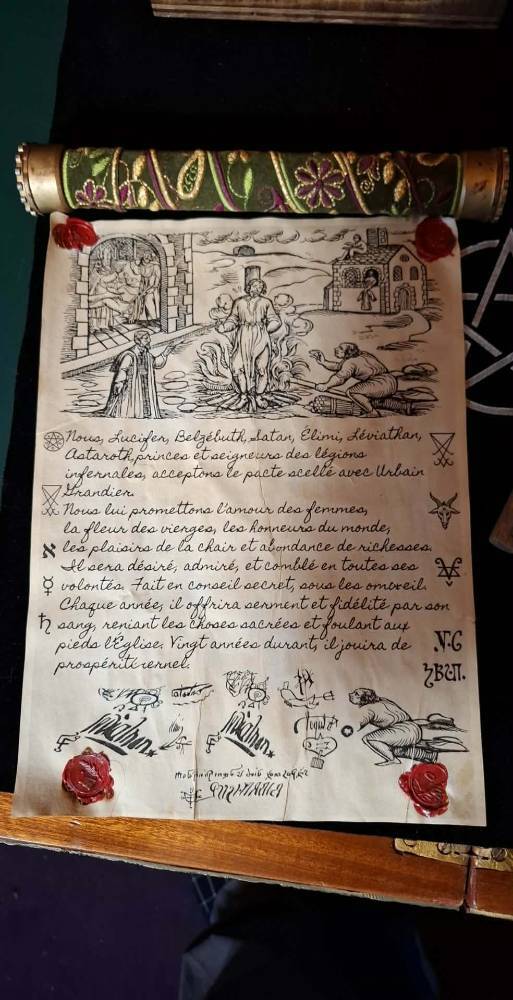 Nous, Lucifer, Belzébuth, Satan, Élimi, Léviathan,
Astaroth, princes et seigneurs des légions
infernales, acceptons le pacte scellé avec Urbain
Grandier.
Nous lui promettons l'amour des femmes,
la fleur des vierges, les honneurs du monde,
les plaisirs de la chair et abondance de richesses.
Il sera désiré, admiré, et comblé en toutes ses
volontés. Fait en conseil secret, sous les
Chaque année, il offrira serment et fidélité par son
sang, reniant les choses sacrées et foulant aux
pieds l'Église. Vingt années durant, il jouira de